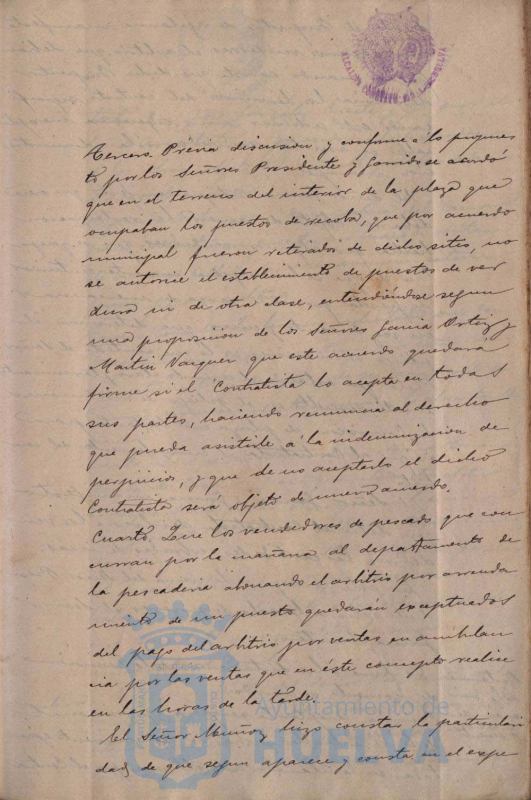 Tercero. Prévia discusion y conforme á lo propues
to por los Señores Presidente y Garrido se acordó
que en el terreno del interior de la plaza que
ocupaban los puestos de recoba, que por acuerdo
municipal fueron retirados de dicho sitio, no
se autorice el establecimiento de puestos de ver
dura ni de otra clase, entendiéndose segun
una proposición de los Señores Garcia Ortiz y
Martin Vazquez que este acuerdo quedará
firme si el Contratista lo acepta en todas
sus partes, haciendo renuncia al derecho
que pueda asistirle á la indemnizacion de
perjuicios, y que de no aceptarlo el dicho
Contratista será objeto de nuevo acuerdo.
Cuarto. Que los vendedores de pescado que con
curran por la mañana al departamento de
la pescaderia abonando el arbitrio por arrenda
miento de un puesto quedarán exceptuados
del pago del arbitrio por ventas en ambulan
cia por las ventas que en éste concepto realice
en las horas de la tarde.
El Señor Muñoz hizo constar la particulari
dad, de que segun aparece y consta en el espe
Ayuntamiento de
HUELVA